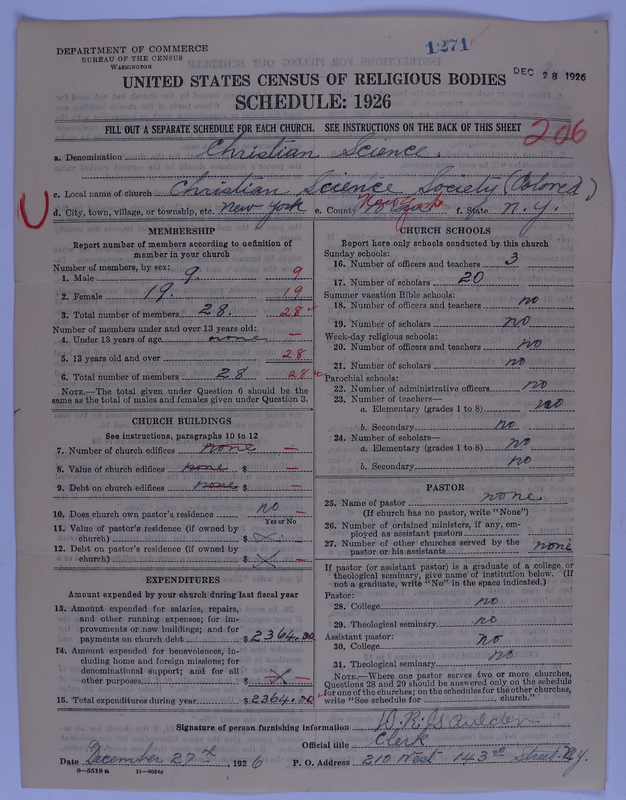 DEPARTMENT OF COMMERCE
BUREAU OF THE CENSUS
WASHINGTON
1271
UNITED STATES CENSUS OF RELIGIOUS BODIES
DEC 28 1926
SCHEDULE: 1926
FILL OUT A SEPARATE SCHEDULE FOR EACH CHURCH. SEE INSTRUCTIONS ON THE BACK OF THIS SHEET
206
a. Denomination Christian Science.
c. Local name of church Christian Science Society (Colored)
d. City, town, village, or township, etc. New York e. County New York f. State N.Y.
MEMBERSHIP
Report number of members according to definition of
member in your church
Number of members, by sex:
1. Male 9. 9
2. Female 19. 19
3. Total number of members 28. 28
Number of members under and over 13 years old:
4. Under 13 years of age none —
5. 13 years old and over 28
6. Total number of members 28 28
NOTE.—The total given under Question 6 should be the
same as the total of males and females given under Question 3.
CHURCH BUILDINGS
See instructions, paragraphs 10 to 12
7. Number of church edifices none —
8. Value of church edifices none $ —
9. Debt on church edifices none $ —
10. Does church own pastor's residence no —
Yes or No
11. Value of pastor's residence (if owned by
church) $ X —
12. Debt on pastor's residence (if owned by
church) $ X —
EXPENDITURES
Amount expended by your church during last fiscal year
13. Amount expended for salaries, repairs,
and other running expenses; for im-
provements or new buildings; and for
payments on church debt $ 2364.00
14. Amount expended for benevolences, in-
cluding home and foreign missions; for
denominational support; and for all
other purposes $ X —
15. Total expenditures during year $ 2364.00
CHURCH SCHOOLS
Report here only schools conducted by this church
Sunday schools:
16. Number of officers and teachers 3
17. Number of scholars 20
Summer vacation Bible schools:
18. Number of officers and teachers no
19. Number of scholars no
Week-day religious schools:
20. Number of officers and teachers no
21. Number of scholars no
Parochial schools:
22. Number of administrative officers no
23. Number of teachers—
a. Elementary (grades 1 to 8) no
b. Secondary no
24. Number of scholars—
a. Elementary (grades 1 to 8) no
b. Secondary no
PASTOR
25. Name of pastor none
(If church has no pastor, write "None")
26. Number of ordained ministers, if any, em-
ployed as assistant pastors
27. Number of other churches served by the
pastor or his assistants none
If pastor (or assistant pastor) is a graduate of a college or
theological seminary, give name of institution below. (If
not a graduate, write "No" in the space indicated.)
Pastor:
28. College no
29. Theological seminary no
Assistant pastor:
30. College no
31. Theological seminary no
NOTE.—Where one pastor serves two or more churches,
Questions 28 and 29 should be answered only on the schedule
for one of the churches; on the schedules for the other churches,
write "See schedule for church."
Signature of person furnishing information W. R.
Official title Clerk
Date December 27th, 1926 P. O. Address 210 West 143rd Street N.Y.
8—5518 a 11—9034a